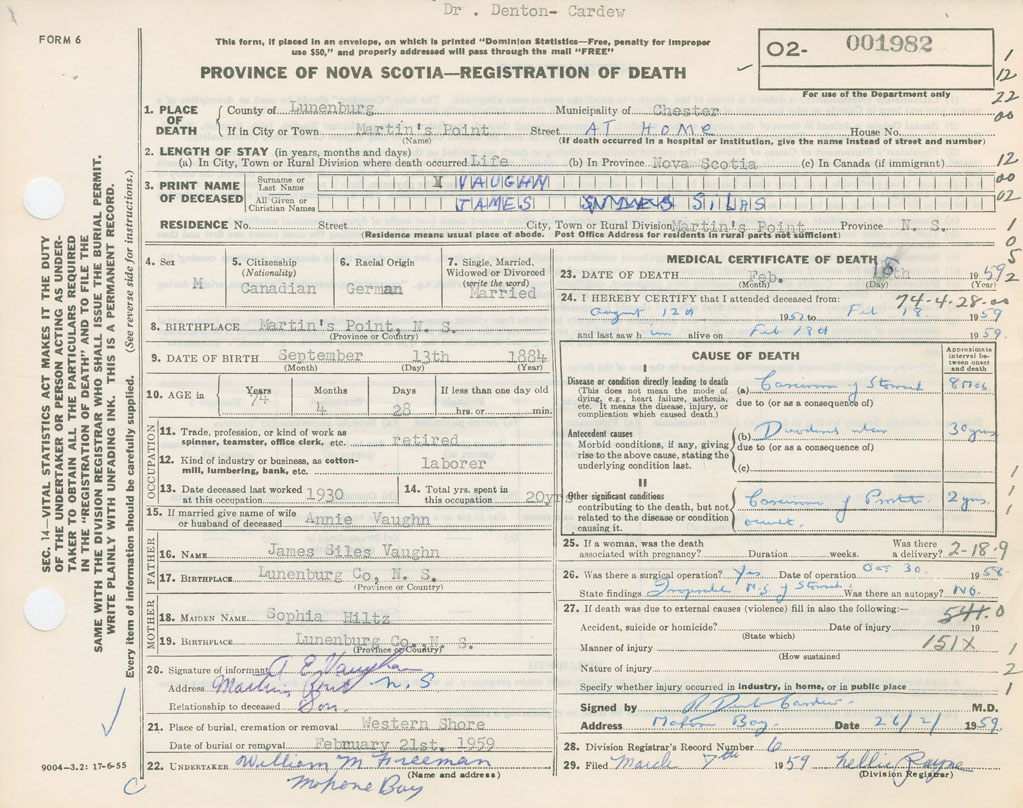 Dr. Denton- Cardew
FORM 6
This form, if placed in an envelope, on which is printed "Dominion Statistics—Free, penalty for improper
use $50," and properly addressed will pass through the mail "FREE"
PROVINCE OF NOVA SCOTIA—REGISTRATION OF DEATH
O2- 001982
For use of the Department only
1
12
22
00
12
00
02
1
0
5
2
SEC. 14—VITAL STATISTICS ACT MAKES IT THE DUTY
OF THE UNDERTAKER OR PERSON ACTING AS UNDER-
TAKER TO OBTAIN ALL THE PARTICULARS REQUIRED
IN THE "REGISTRATION OF DEATH" AND TO FILE THE
SAME WITH THE DIVISION REGISTRAR WHO SHALL ISSUE THE BURIAL PERMIT.
WRITE PLAINLY WITH UNFADING INK. THIS IS A PERMANENT RECORD.
Every item of information should be carefully supplied. (See reverse side for instructions.)
1. PLACE OF DEATH County of Lunenburg Municipality of Chester
If in City or Town Martin's Point Street AT HOME House No.
(Name) (If death occurred in a hospital or institution, give the name instead of street and number)
2. LENGTH OF STAY (in years, months and days)
(a) In City, Town or Rural Division where death occurred Life (b) In Province Nova Scotia (c) In Canada (if immigrant)
3. PRINT NAME OF DECEASED Surname or Last Name VAUGHN
All Given or Christian Names JAMES SILAS
RESIDENCE No. Street City, Town or Rural Division Martin's Point Province N. S.
(Residence means usual place of abode. Post Office Address for residents in rural parts not sufficient)
4. Sex M
5. Citizenship (Nationality) Canadian
6. Racial Origin German
7. Single, Married, Widowed or Divorced (write the word) Married
8. BIRTHPLACE Martin's Point, N. S.
(Province or Country)
9. DATE OF BIRTH September 13th 1884
(Month) (Day) (Year)
10. AGE in Years 74 Months 4 Days 28 If less than one day old hrs. or min.
OCCUPATION
11. Trade, profession, or kind of work as spinner, teamster, office clerk, etc. retired
12. Kind of industry or business, as cotton-mill, lumbering, bank, etc. laborer
13. Date deceased last worked at this occupation 1930
14. Total yrs. spent in this occupation 20yrs
15. If married give name of wife or husband of deceased Annie Vaughn
FATHER
16. NAME James Siles Vaughn
17. BIRTHPLACE Lunenburg Co, N. S.
(Province or Country)
MOTHER
18. MAIDEN NAME Sophia Hiltz
19. BIRTHPLACE Lunenburg Co., N. S.
(Province or Country)
20. Signature of informant A E Vaughan
Address Martins Point N.S
Relationship to deceased Son.
21. Place of burial, cremation or removal Western Shore
Date of burial or removal February 21st. 1959
22. UNDERTAKER William M Freeman
(Name and address)
Mahone Bay
9004-3.2: 17-6-55
C
MEDICAL CERTIFICATE OF DEATH
23. DATE OF DEATH Feb. 18th 1959
(Month) (Day) (Year)
74-4-28-00
24. I HEREBY CERTIFY that I attended deceased from:
August 12th 1957 to Feb 18 1959
and last saw h im alive on Feb 18th 1959.
CAUSE OF DEATH
Approximate interval between onset and death
I
Disease or condition directly leading to death
(This does not mean the mode of dying, e.g., heart failure, asthenia, etc. It means the disease, injury, or complication which caused death.)
(a) Carcinom of Stomach 8 Mos
due to (or as a consequence of)
Antecedent causes
Morbid conditions, if any, giving rise to the above cause, stating the underlying condition last.
(b) Duodenal ulcer 30 yrs
due to (or as a consequence of)
(c)
II
Other significant conditions
contributing to the death, but not related to the disease or condition causing it.
Carcinom of Prostate 2 yrs.
25. If a woman, was the death associated with pregnancy? Duration weeks. Was there a delivery? 2-18-9
26. Was there a surgical operation? Yes Date of operation Oct 30. 1958.
State findings Inoperable N.G. of Stomach Was there an autopsy? NO.
27. If death was due to external causes (violence) fill in also the following:— 541.0
Accident, suicide or homicide? Date of injury 19
(State which)
Manner of injury 151X
(How sustained)
Nature of injury
Specify whether injury occurred in industry, in home, or in public place
1
1
1
1
2
1
Signed by R Denton Cardew M.D.
Address Mahone Bay. Date 26/2/ 1959.
28. Division Registrar's Record Number 6
29. Filed March 7th 1959 Nellie Rayne
(Division Registrar)